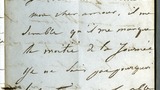 mon cher amour, il me
semble qu'il me manque
la moitié de la journée
je ne sais pas pourquoi